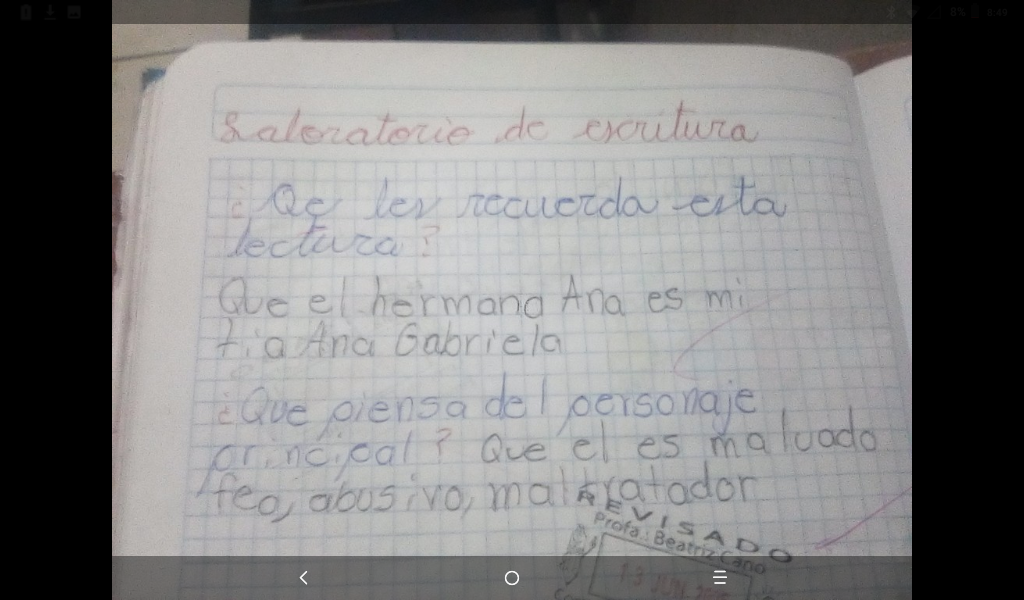 Laboratorio de escritura
¿Qe les recuerda esta
lectura?
Que el hermana Ana es mi
tia Ana Gabriela
¿Que piensa del personaje
principal? Que el es malvado
feo, abusivo, maltratador
REVISADO
Profa: Beatriz Cano
13 JUN
8%